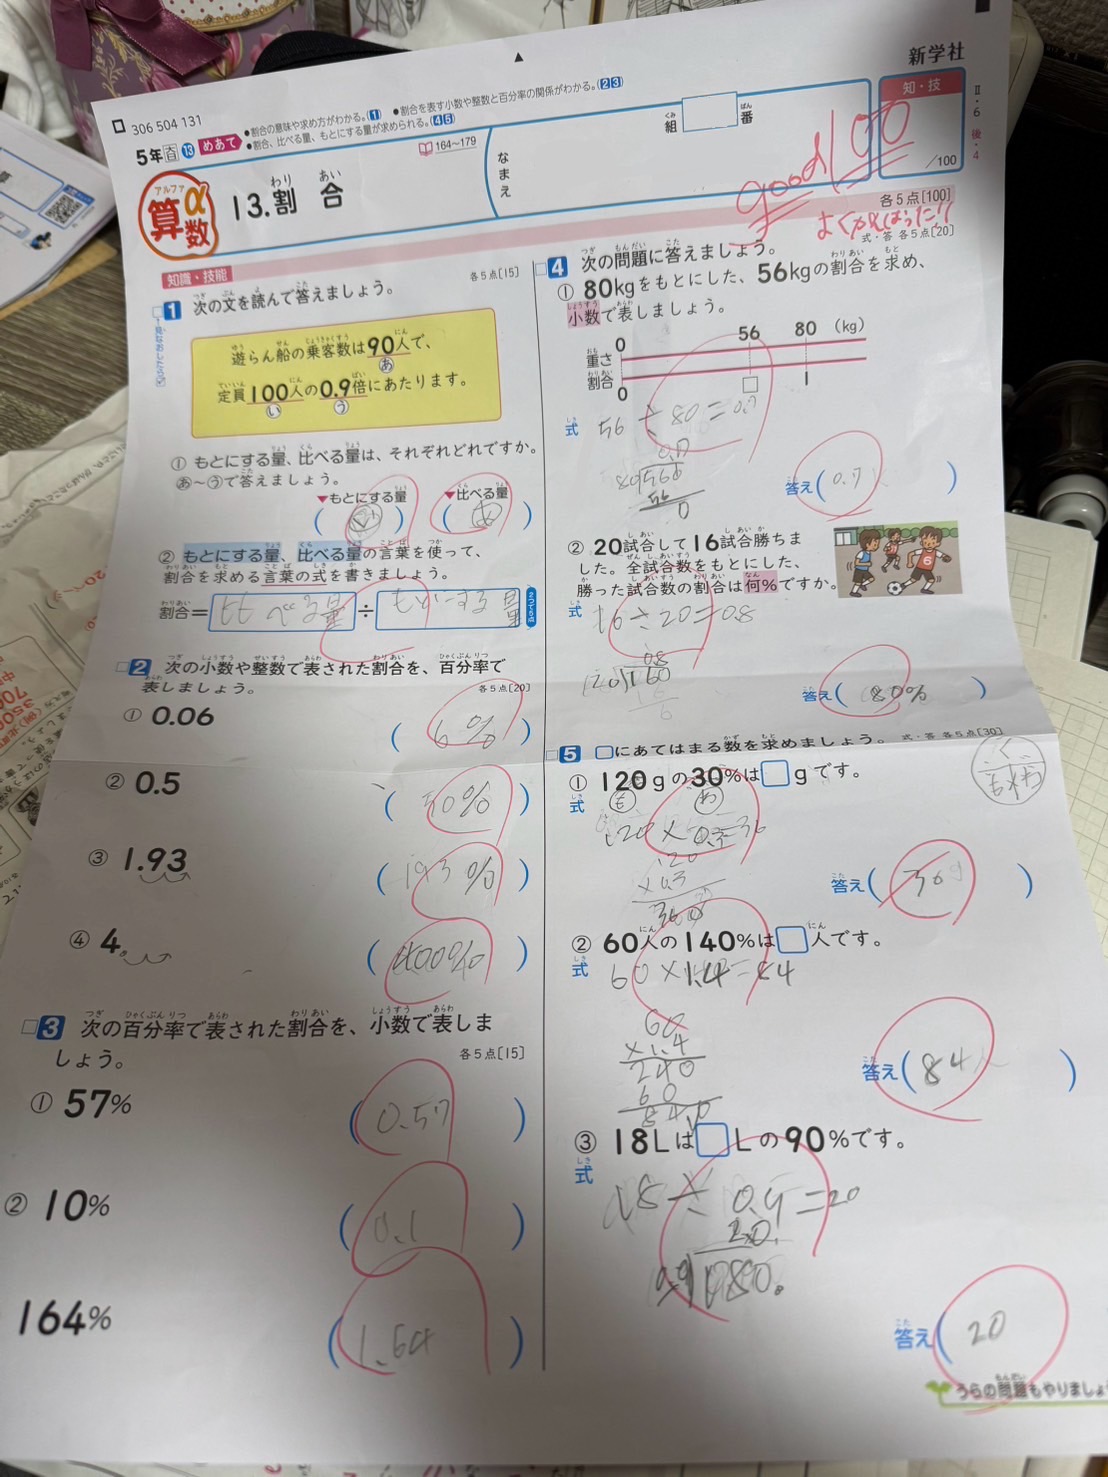 新学社
306 504 131
5年 13 めあて
●割合の意味や求め方がわかる。(1) ●割合を表す小数や整数と百分率の関係がわかる。(2 3)
●割合、比べる量、もとにする量が求められる。(4 5)
164~179
組 番
知・技
/100
Ⅱ・6 後・4
アルファ
算α数
13.割合
なまえ
good 100
よくがんばった!!
各5点[100]
知識・技能
各5点[15]
1 次の文を読んで答えましょう。
遊らん船の乗客数は90人で、
あ
定員100人の0.9倍にあたります。
い う
① もとにする量、比べる量は、それぞれどれですか。
あ~うで答えましょう。
▼もとにする量 ▼比べる量
(い) (あ)
② もとにする量、比べる量の言葉を使って、
割合を求める言葉の式を書きましょう。
割合= 比べる量 ÷ もとにする量
2つで5点
2 次の小数や整数で表された割合を、百分率で
表しましょう。
各5点[20]
① 0.06 ( 6% )
② 0.5 ( 50% )
③ 1.93 ( 193% )
④ 4 ( 400% )
3 次の百分率で表された割合を、小数で表しま
しょう。
各5点[15]
① 57% ( 0.57 )
② 10% ( 0.1 )
164% ( 1.64 )
式・答 各5点[20]
4 次の問題に答えましょう。
① 80kgをもとにした、56kgの割合を求め、
小数で表しましょう。
0 56 80 (kg)
重さ
割合
0 □ 1
式 56÷80=0.7
答え( 0.7 )
② 20試合して16試合勝ちま
した。全試合数をもとにした、
勝った試合数の割合は何%ですか。
式 16÷20=0.8
答え( 80% )
5 □にあてはまる数を求めましょう。 式・答 各5点[30]
① 120gの30%は□gです。
式 120×0.3=36
答え( 36g )
② 60人の140%は□人です。
式 60×1.4=84
60
×1.4
240
60
84.0
答え( 84人 )
③ 18Lは□Lの90%です。
式 18÷0.9=20
答え( 20 )
うらの問題もやりましょ